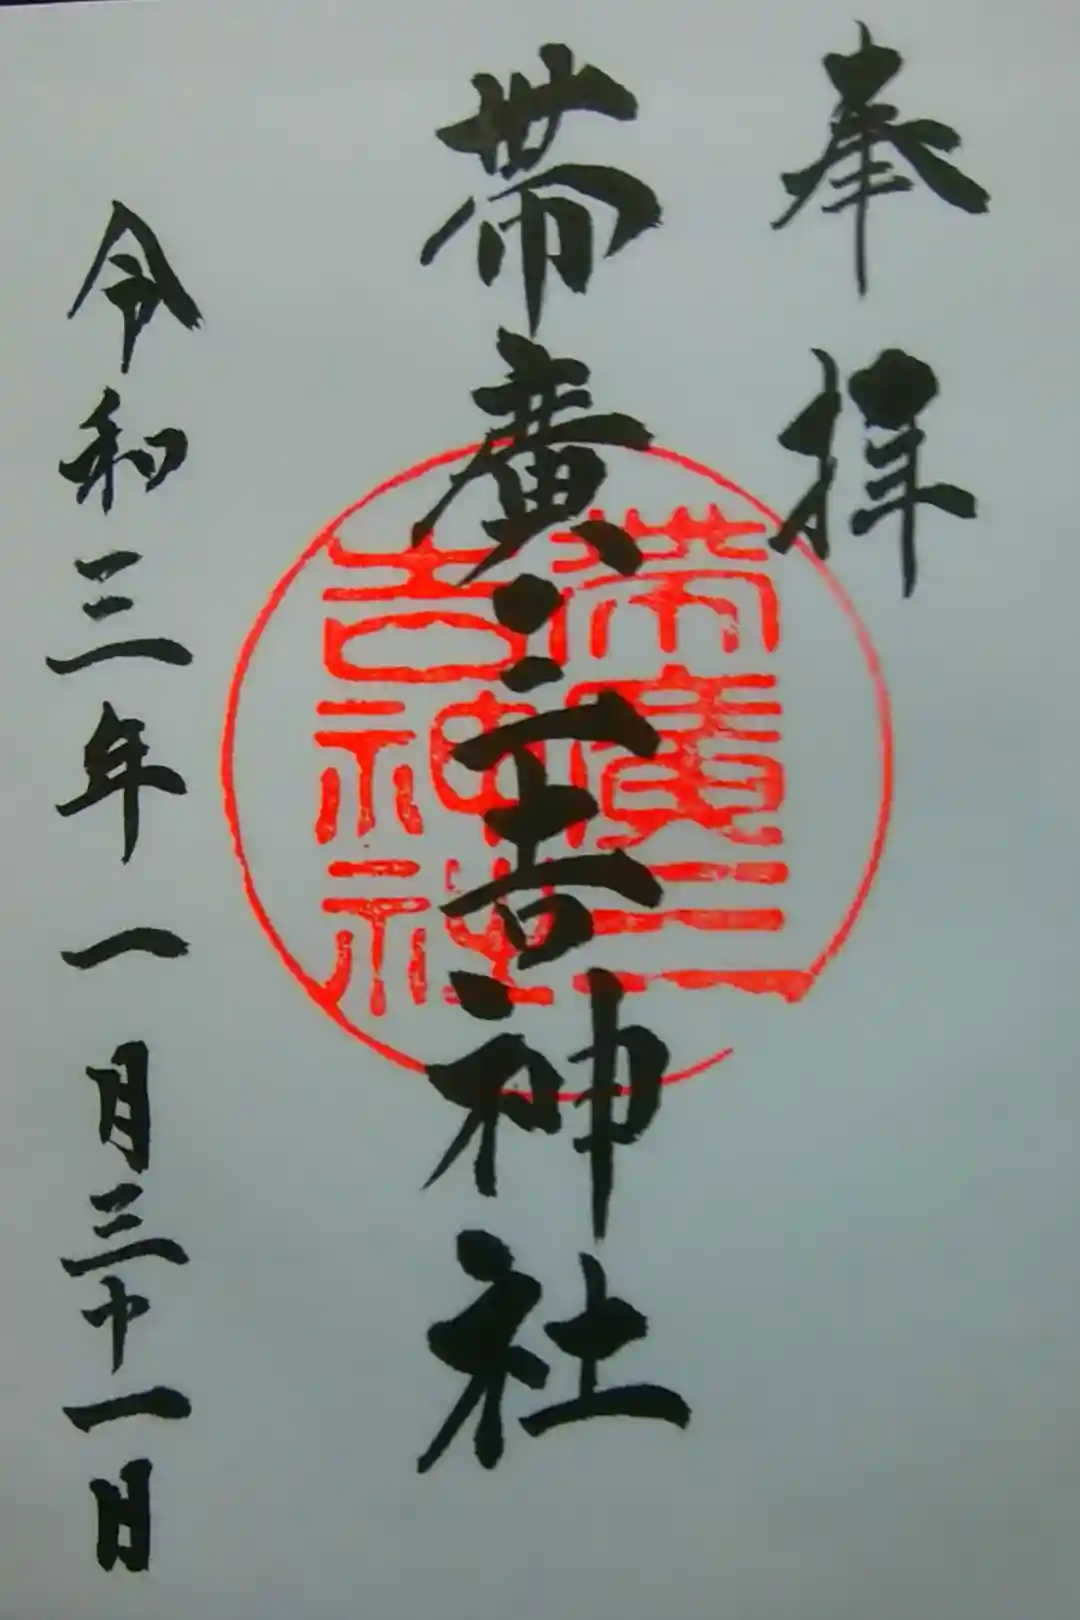 奉拝
帯廣三吉神社
帯廣三
吉神社
令和三年一月三十一日